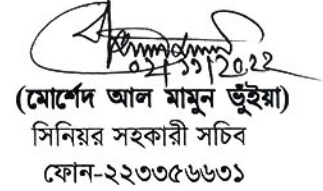 ০২/১১/2022
(মোর্শেদ আল মামুন ভুঁইয়া)
সিনিয়র সহকারী সচিব
ফোন-২২৩৩৫৬৬৩১